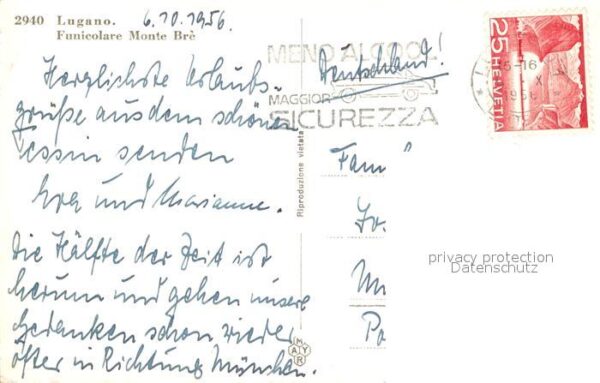 2940 Lugano. 6.10.1956.
Funicolare Monte Brè
Herzlichste Urlaubs-
grüße aus dem schönen
Tessin senden
und Marianne.
Die Hälfte der Zeit ist
herum und gehen unsere
Gedanken schon wieder
öfter in Richtung München.
MAYR
Riproduzione vietata
MENO ALCOOL
MAGGIOR
SICUREZZA
Deutschland!
15-16
X
1956
25
HELVETIA
Fam
Jo.
Mü
Po
privacy protection
Datenschutz